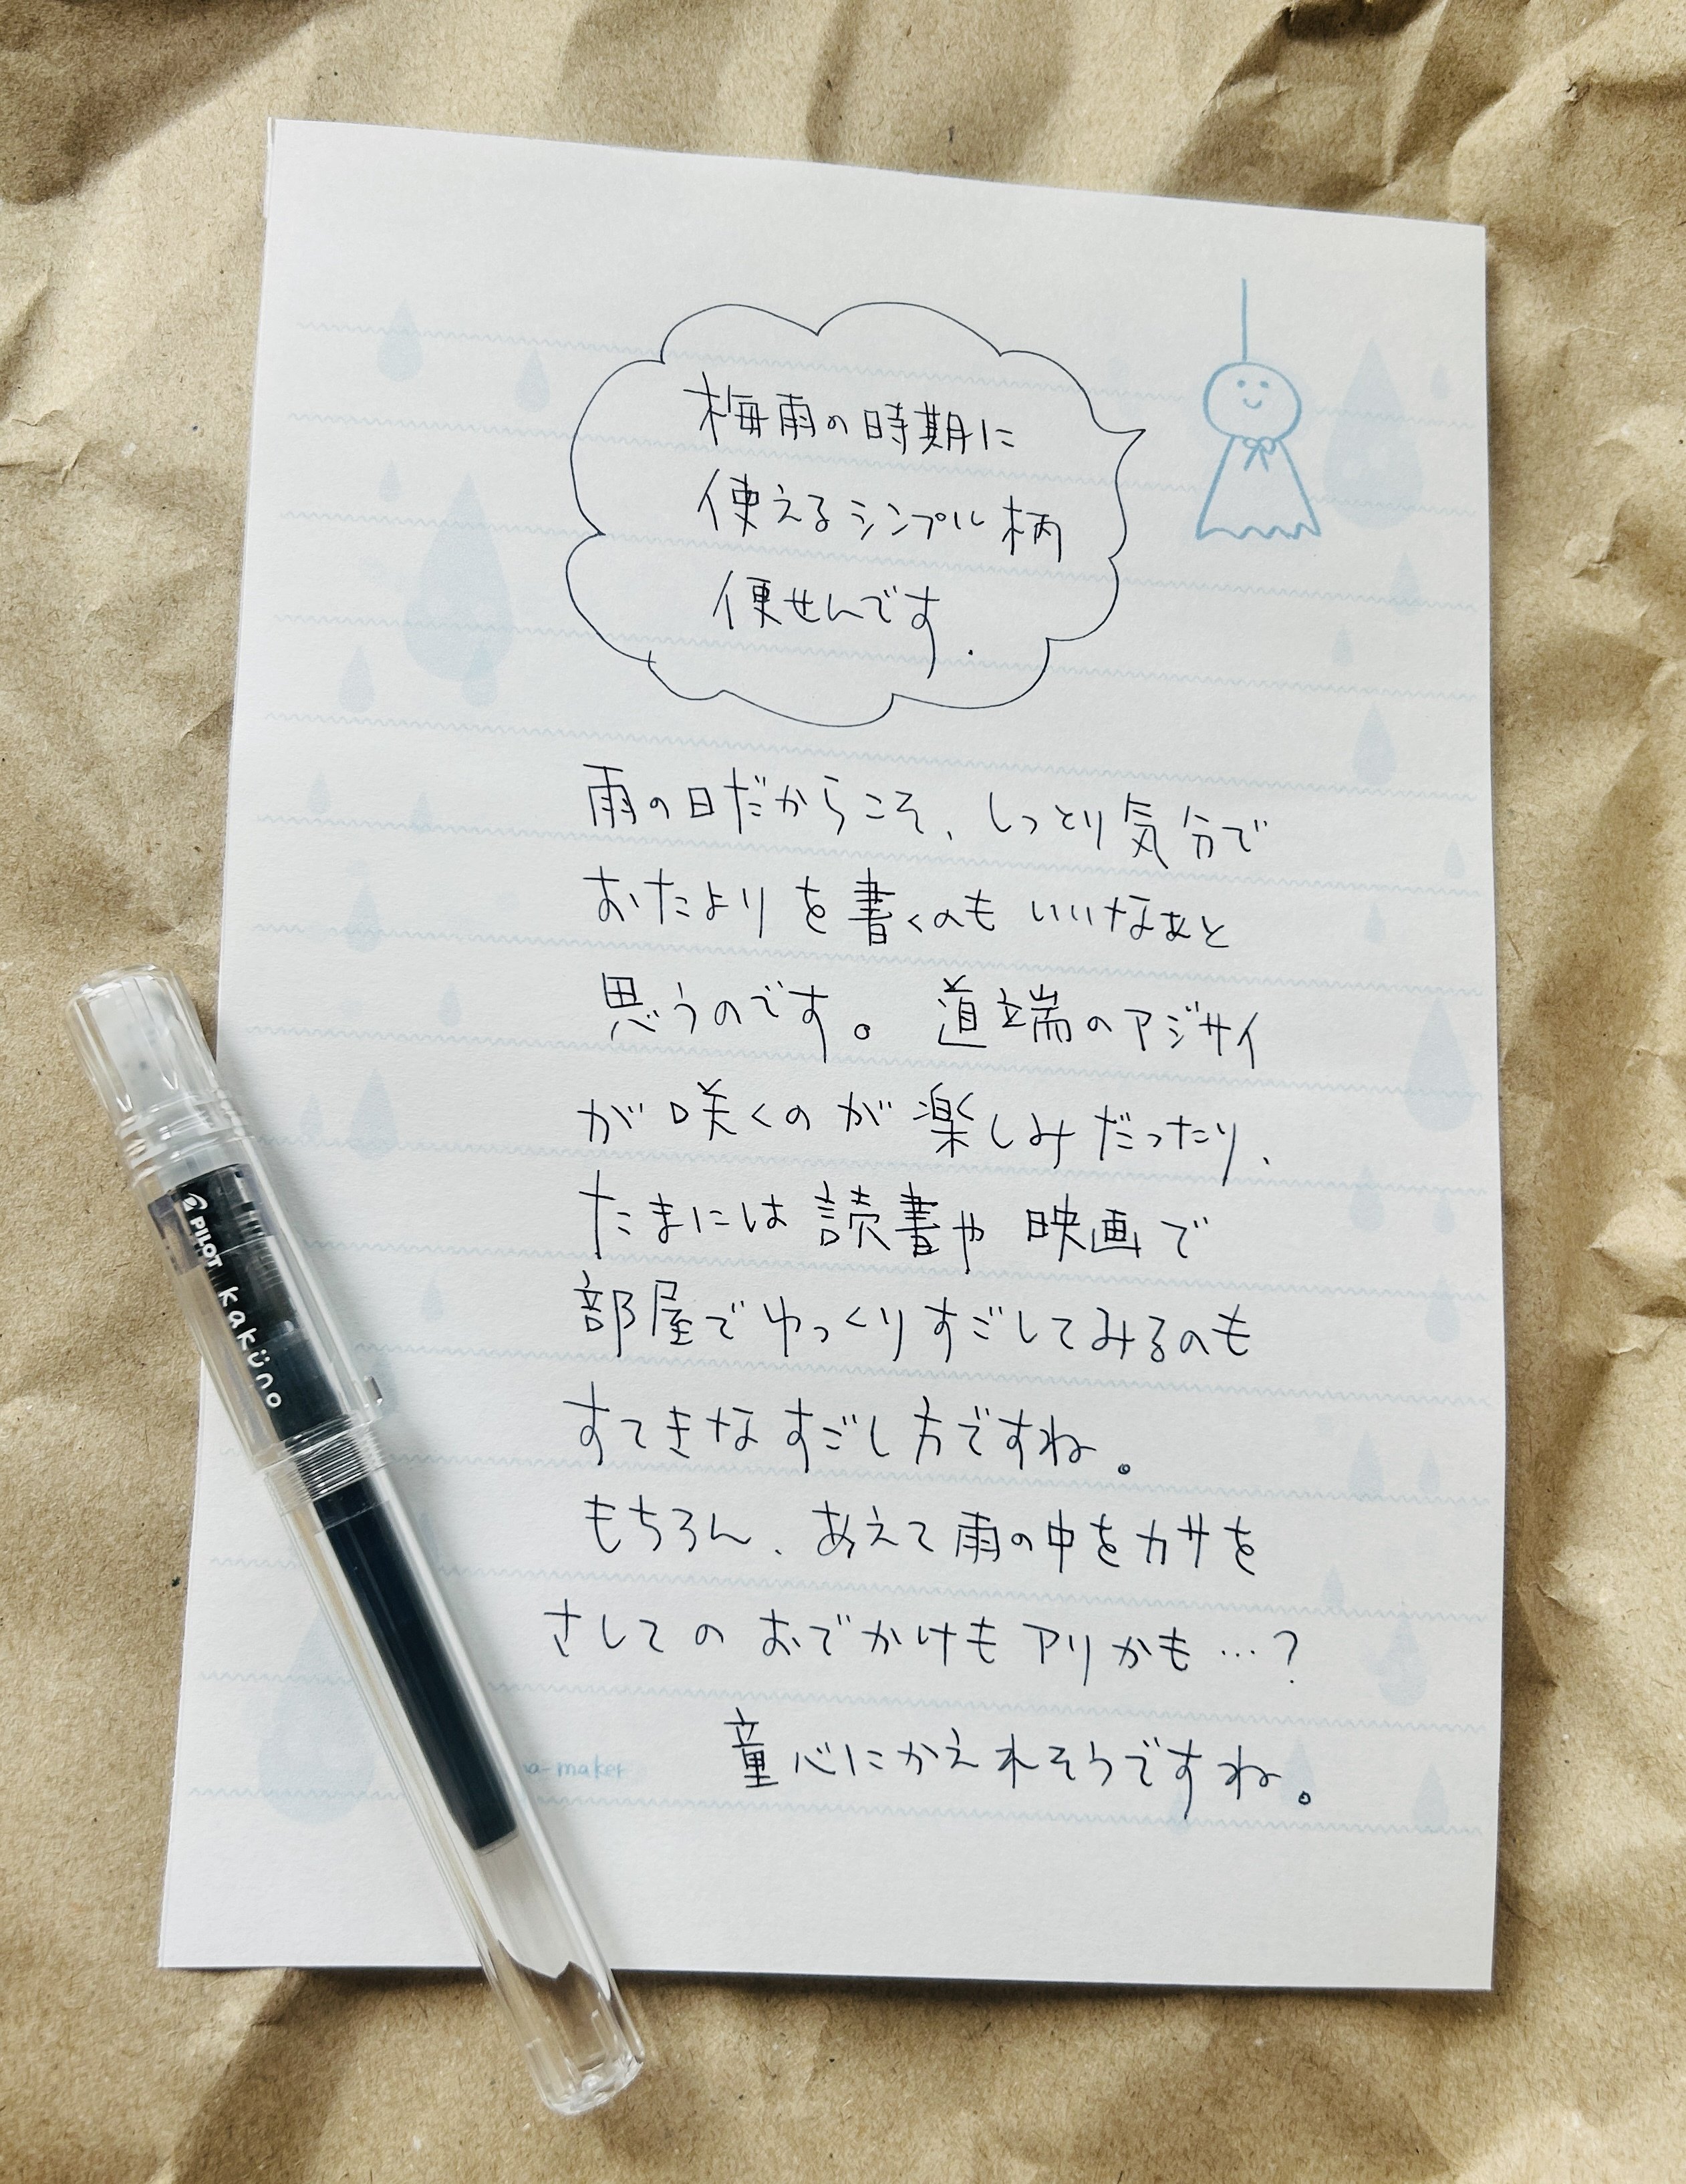 梅雨の時期に
使えるシンプル柄
便せんです.
雨の日だからこそ、しっとり気分で
おたよりを書くのもいいなぁと
思うのです。 道端のアジサイ
が咲くのが楽しみだったり、
たまには読書や映画で
部屋でゆっくりすごしてみるのも
すてきなすごし方ですね。
もちろん、あえて雨の中をカサを
さしてのおでかけもアリかも…?
童心にかえれそうですね。
a-maker
PILOT kaküno